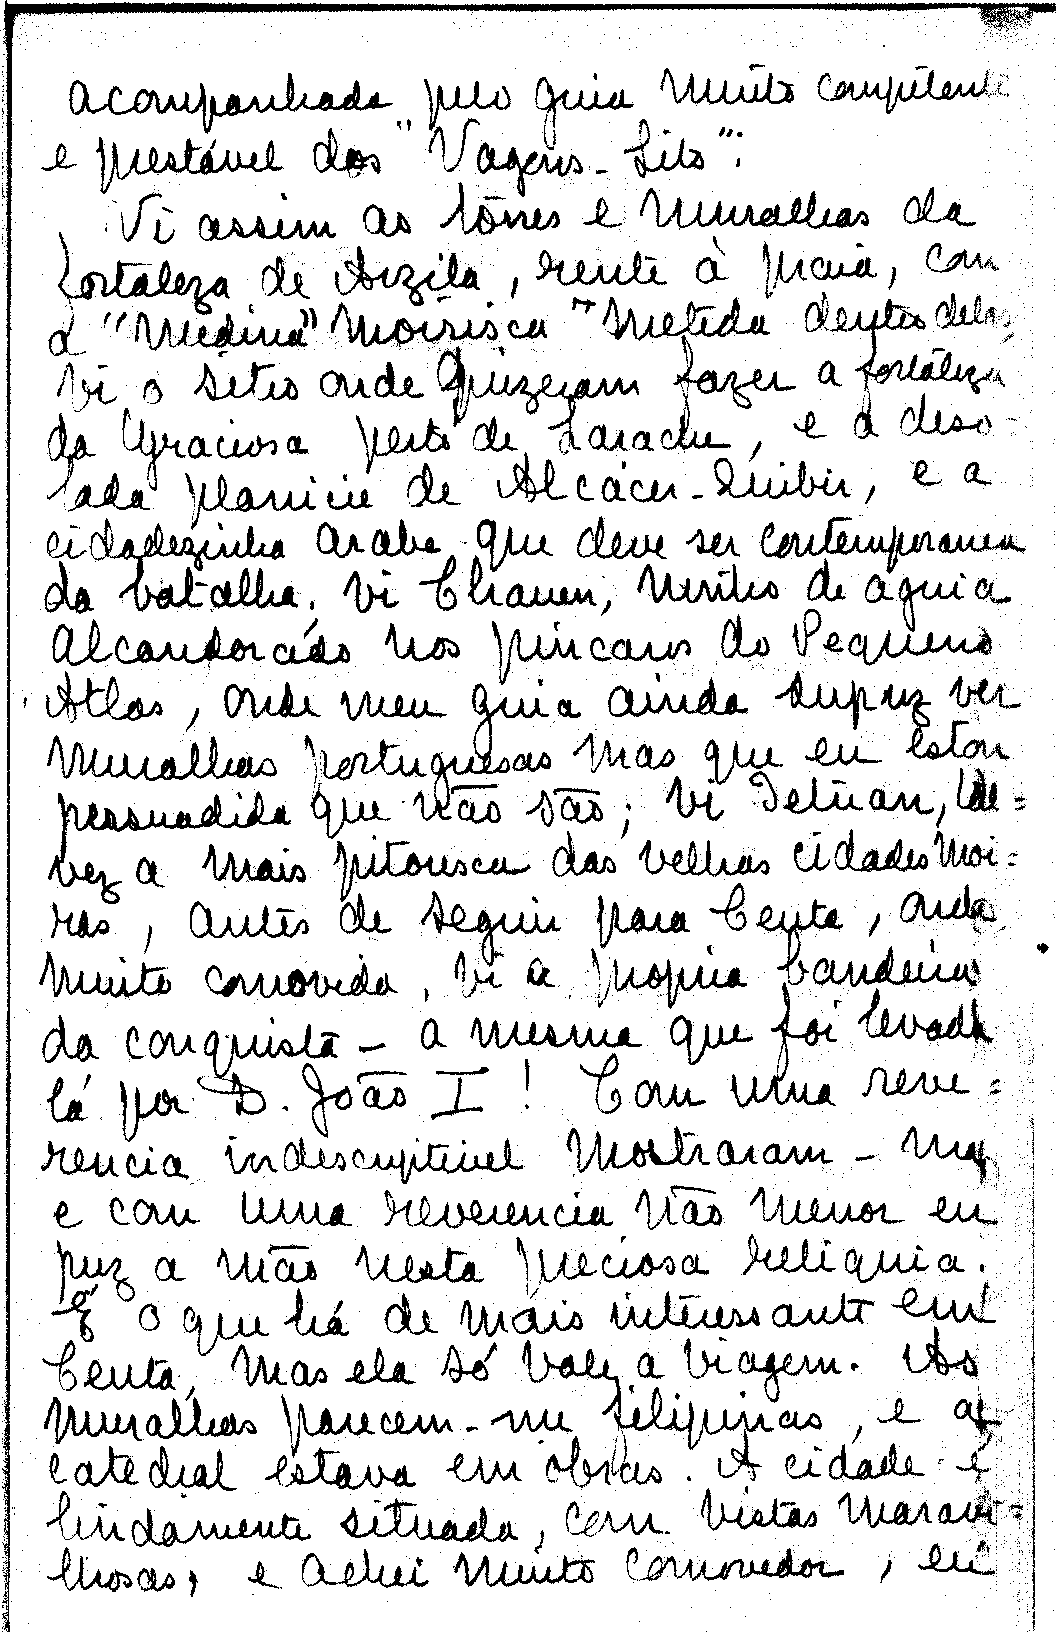 acompanhada pelo guia muito competente
e prestável dos "Viagens-Lito":
Vi assim as tôrres e muralhas da
fortaleza de Arzila, rente à praia, com
a "Medina" moirisca metida dentro dela,
vi o sitio onde quizeram fazer a fortaleza
da Graciosa perto de Larache, e a deso-
lada planicie de Alcácer-Quibir, e a
cidadezinha arabe que deve ser contemporanea
da batalha, vi Chauen, ninho de aguia
alcandorado nos pincaros do Pequeno
Atlas, onde meu guia ainda supuz ver
muralhas portuguesas mas que eu estou
persuadida que não são; vi Tetuan, tal=
vez a mais pitoresca das velhas cidades moi=
ras, antes de seguir para Ceuta, onde
muito comovida, vi a propria bandeira
da conquista - a mesma que foi levada
lá por D. João I! Com uma reve=
rencia indescriptivel mostraram-ma,
e com uma reverencia não menor eu
puz a mão nesta preciosa reliquia.
É o que há de mais interessante em
Ceuta, mas ela só vale a viagem. As
muralhas parecem-me filipinas, e a
catedral estava em obras. A cidade é
lindamente situada, com vistas maravi=
lhosas, e achei muito comovedor, eu